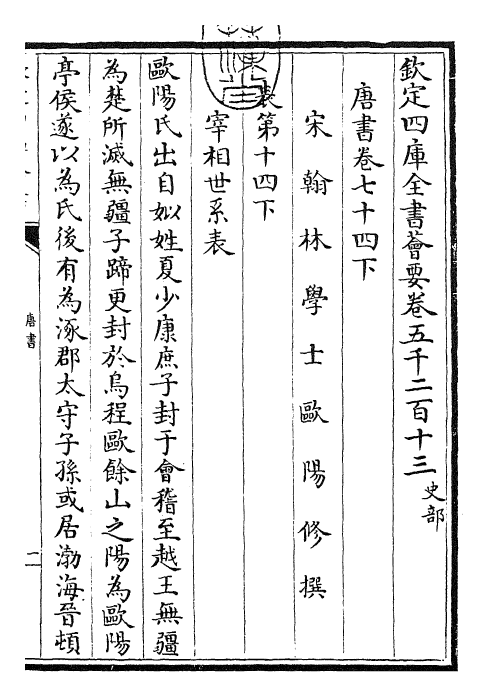 欽定四庫全書薈要卷五千二百十三 史部
唐書卷七十四下
宋翰林學士歐陽修撰
表第十四下
宰相世系表
歐陽氏出自姒姓夏少康庶子封于會稽至越王無疆
為楚所滅無疆子蹄更封於烏程歐餘山之陽為歐陽
亭侯遂以為氏後有為涿郡太守子孫或居渤海晉頓
唐書